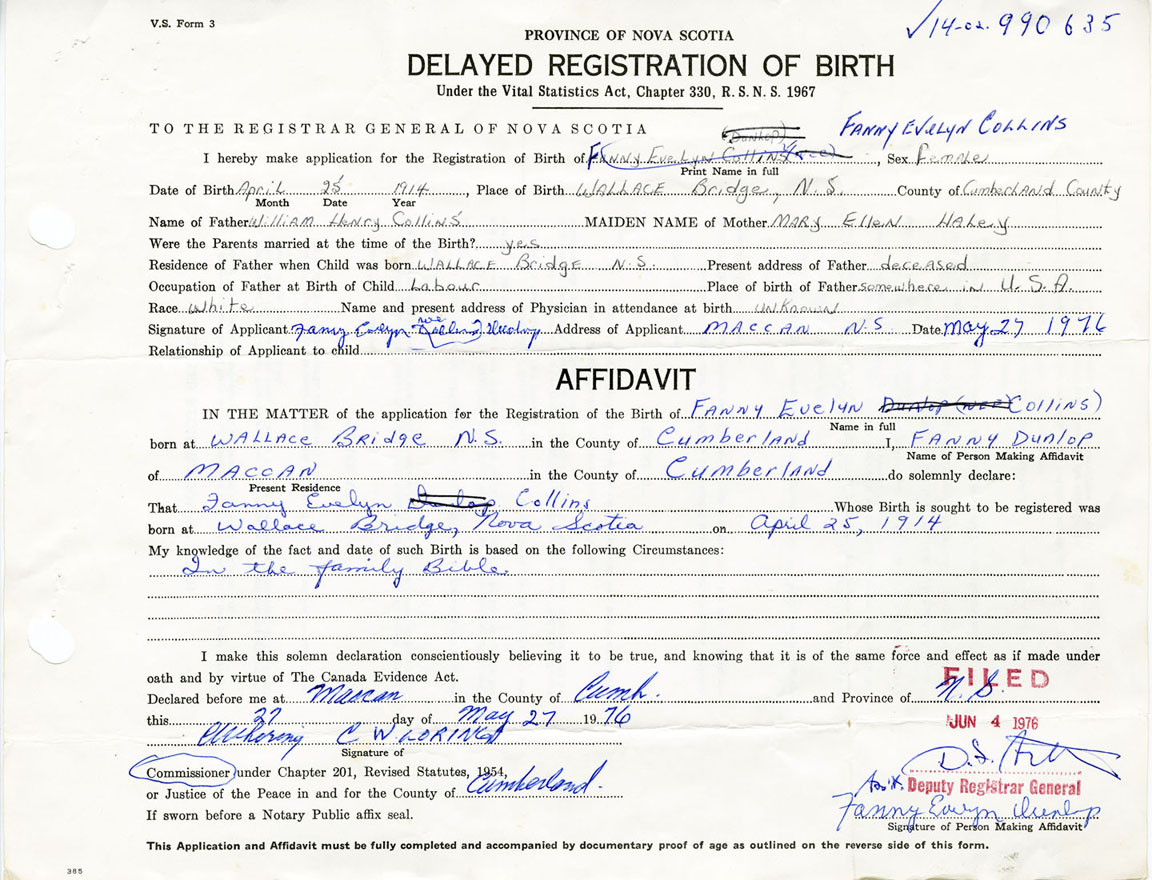 V.S. Form 3
✓14-02-990635
PROVINCE OF NOVA SCOTIA
DELAYED REGISTRATION OF BIRTH
Under the Vital Statistics Act, Chapter 330, R. S. N. S. 1967
TO THE REGISTRAR GENERAL OF NOVA SCOTIA (Dunlop) FANNY EVELYN COLLINS
I hereby make application for the Registration of Birth of FANNY EVELYN COLLINS (nee), Sex Female
Print Name in full
Date of Birth April 25 1914, Place of Birth WALLACE Bridge, N.S. County of Cumberland County
Month Date Year
Name of Father William Henry Collins MAIDEN NAME of Mother MARY Ellen Haley
Were the Parents married at the time of the Birth? yes
Residence of Father when Child was born WALLACE Bridge N.S. Present address of Father deceased
Occupation of Father at Birth of Child Labour Place of birth of Father somewhere in U.S.A.
Race White Name and present address of Physician in attendance at birth UNKNOWN
Signature of Applicant Fanny Evelyn (nee Collins) Dunlop Address of Applicant MACCAN N.S Date May 27 1976
Relationship of Applicant to child
AFFIDAVIT
IN THE MATTER of the application for the Registration of the Birth of FANNY EVELYN Dunlop (nee) Collins)
Name in full
born at WALLACE BRIDGE N.S. in the County of Cumberland I, FANNY DUNLOP
Name of Person Making Affidavit
of MACCAN in the County of Cumberland do solemnly declare:
Present Residence
That Fanny Evelyn Dunlop Collins Whose Birth is sought to be registered was
born at Wallace Bridge, Nova Scotia on April 25, 1914
My knowledge of the fact and date of such Birth is based on the following Circumstances:
In the family Bible.
I make this solemn declaration conscientiously believing it to be true, and knowing that it is of the same force and effect as if made under
oath and by virtue of The Canada Evidence Act.
FILED
Declared before me at Maccan in the County of Cumb. and Province of N.S
this 27 day of May 27 1976
JUN 4 1976
C W LORING
Signature of
Commissioner under Chapter 201, Revised Statutes, 1954,
or Justice of the Peace in and for the County of Cumberland.
Ass't. Deputy Registrar General
Fanny Evelyn Dunlop
If sworn before a Notary Public affix seal.
Signature of Person Making Affidavit
This Application and Affidavit must be fully completed and accompanied by documentary proof of age as outlined on the reverse side of this form.
385